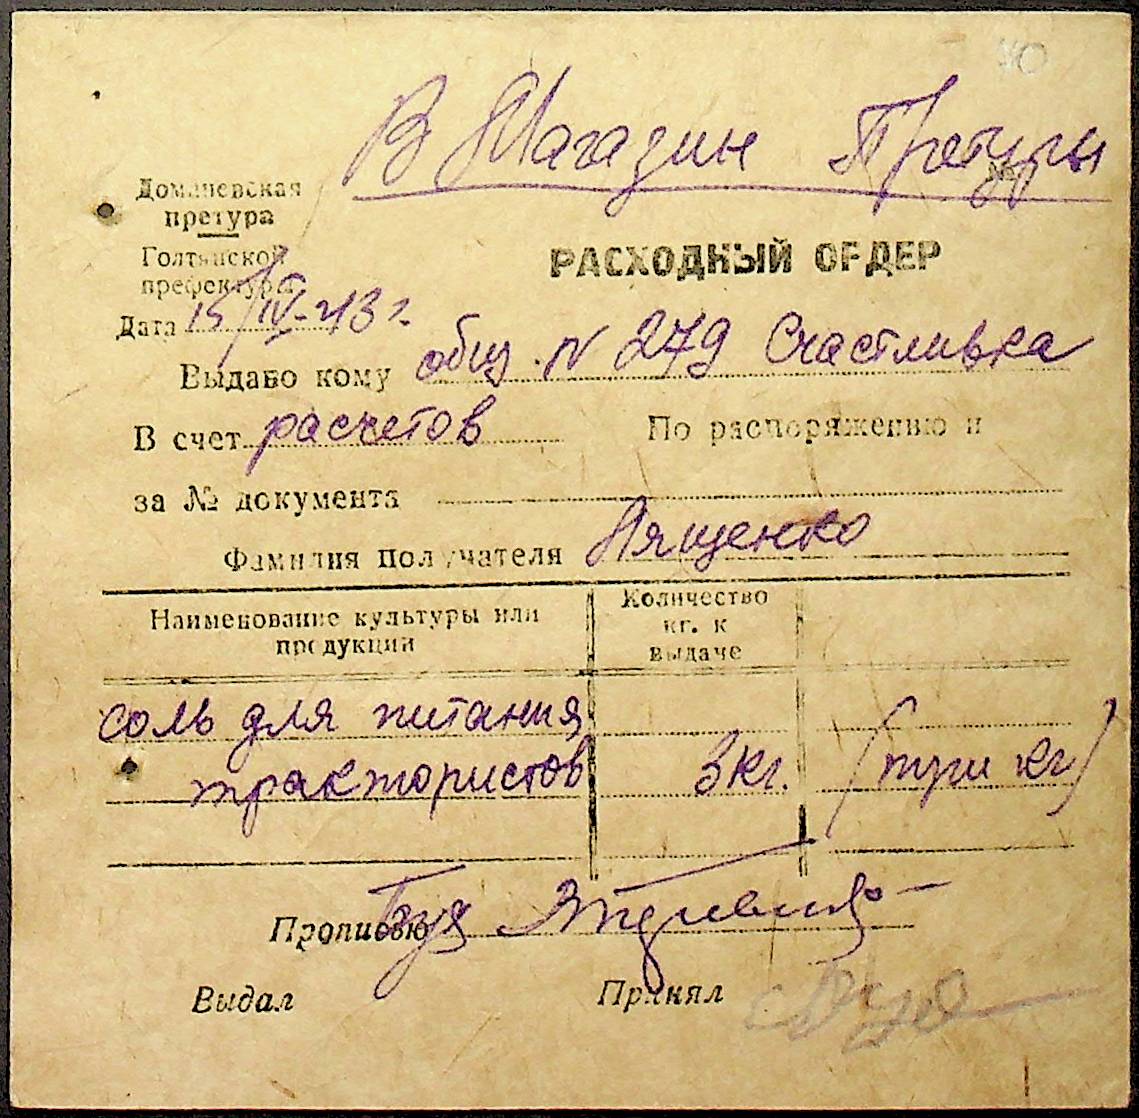 40
В Магазин Претуры
№
Доманевская
претура
Голтянской
префектуры
РАСХОДНЫЙ ОРДЕР
Дата 15/IV-43 г.
Выдано кому общ. N 279 Счастливка
В счет расчетов По распоряжению и
за № документа
Фамилия получателя Лященко
Наименование культуры или
продукции
Количество
кг. к
выдаче
соль для питания
трактористов 3 кг. (три кг)
Прописью
Выдал Принял